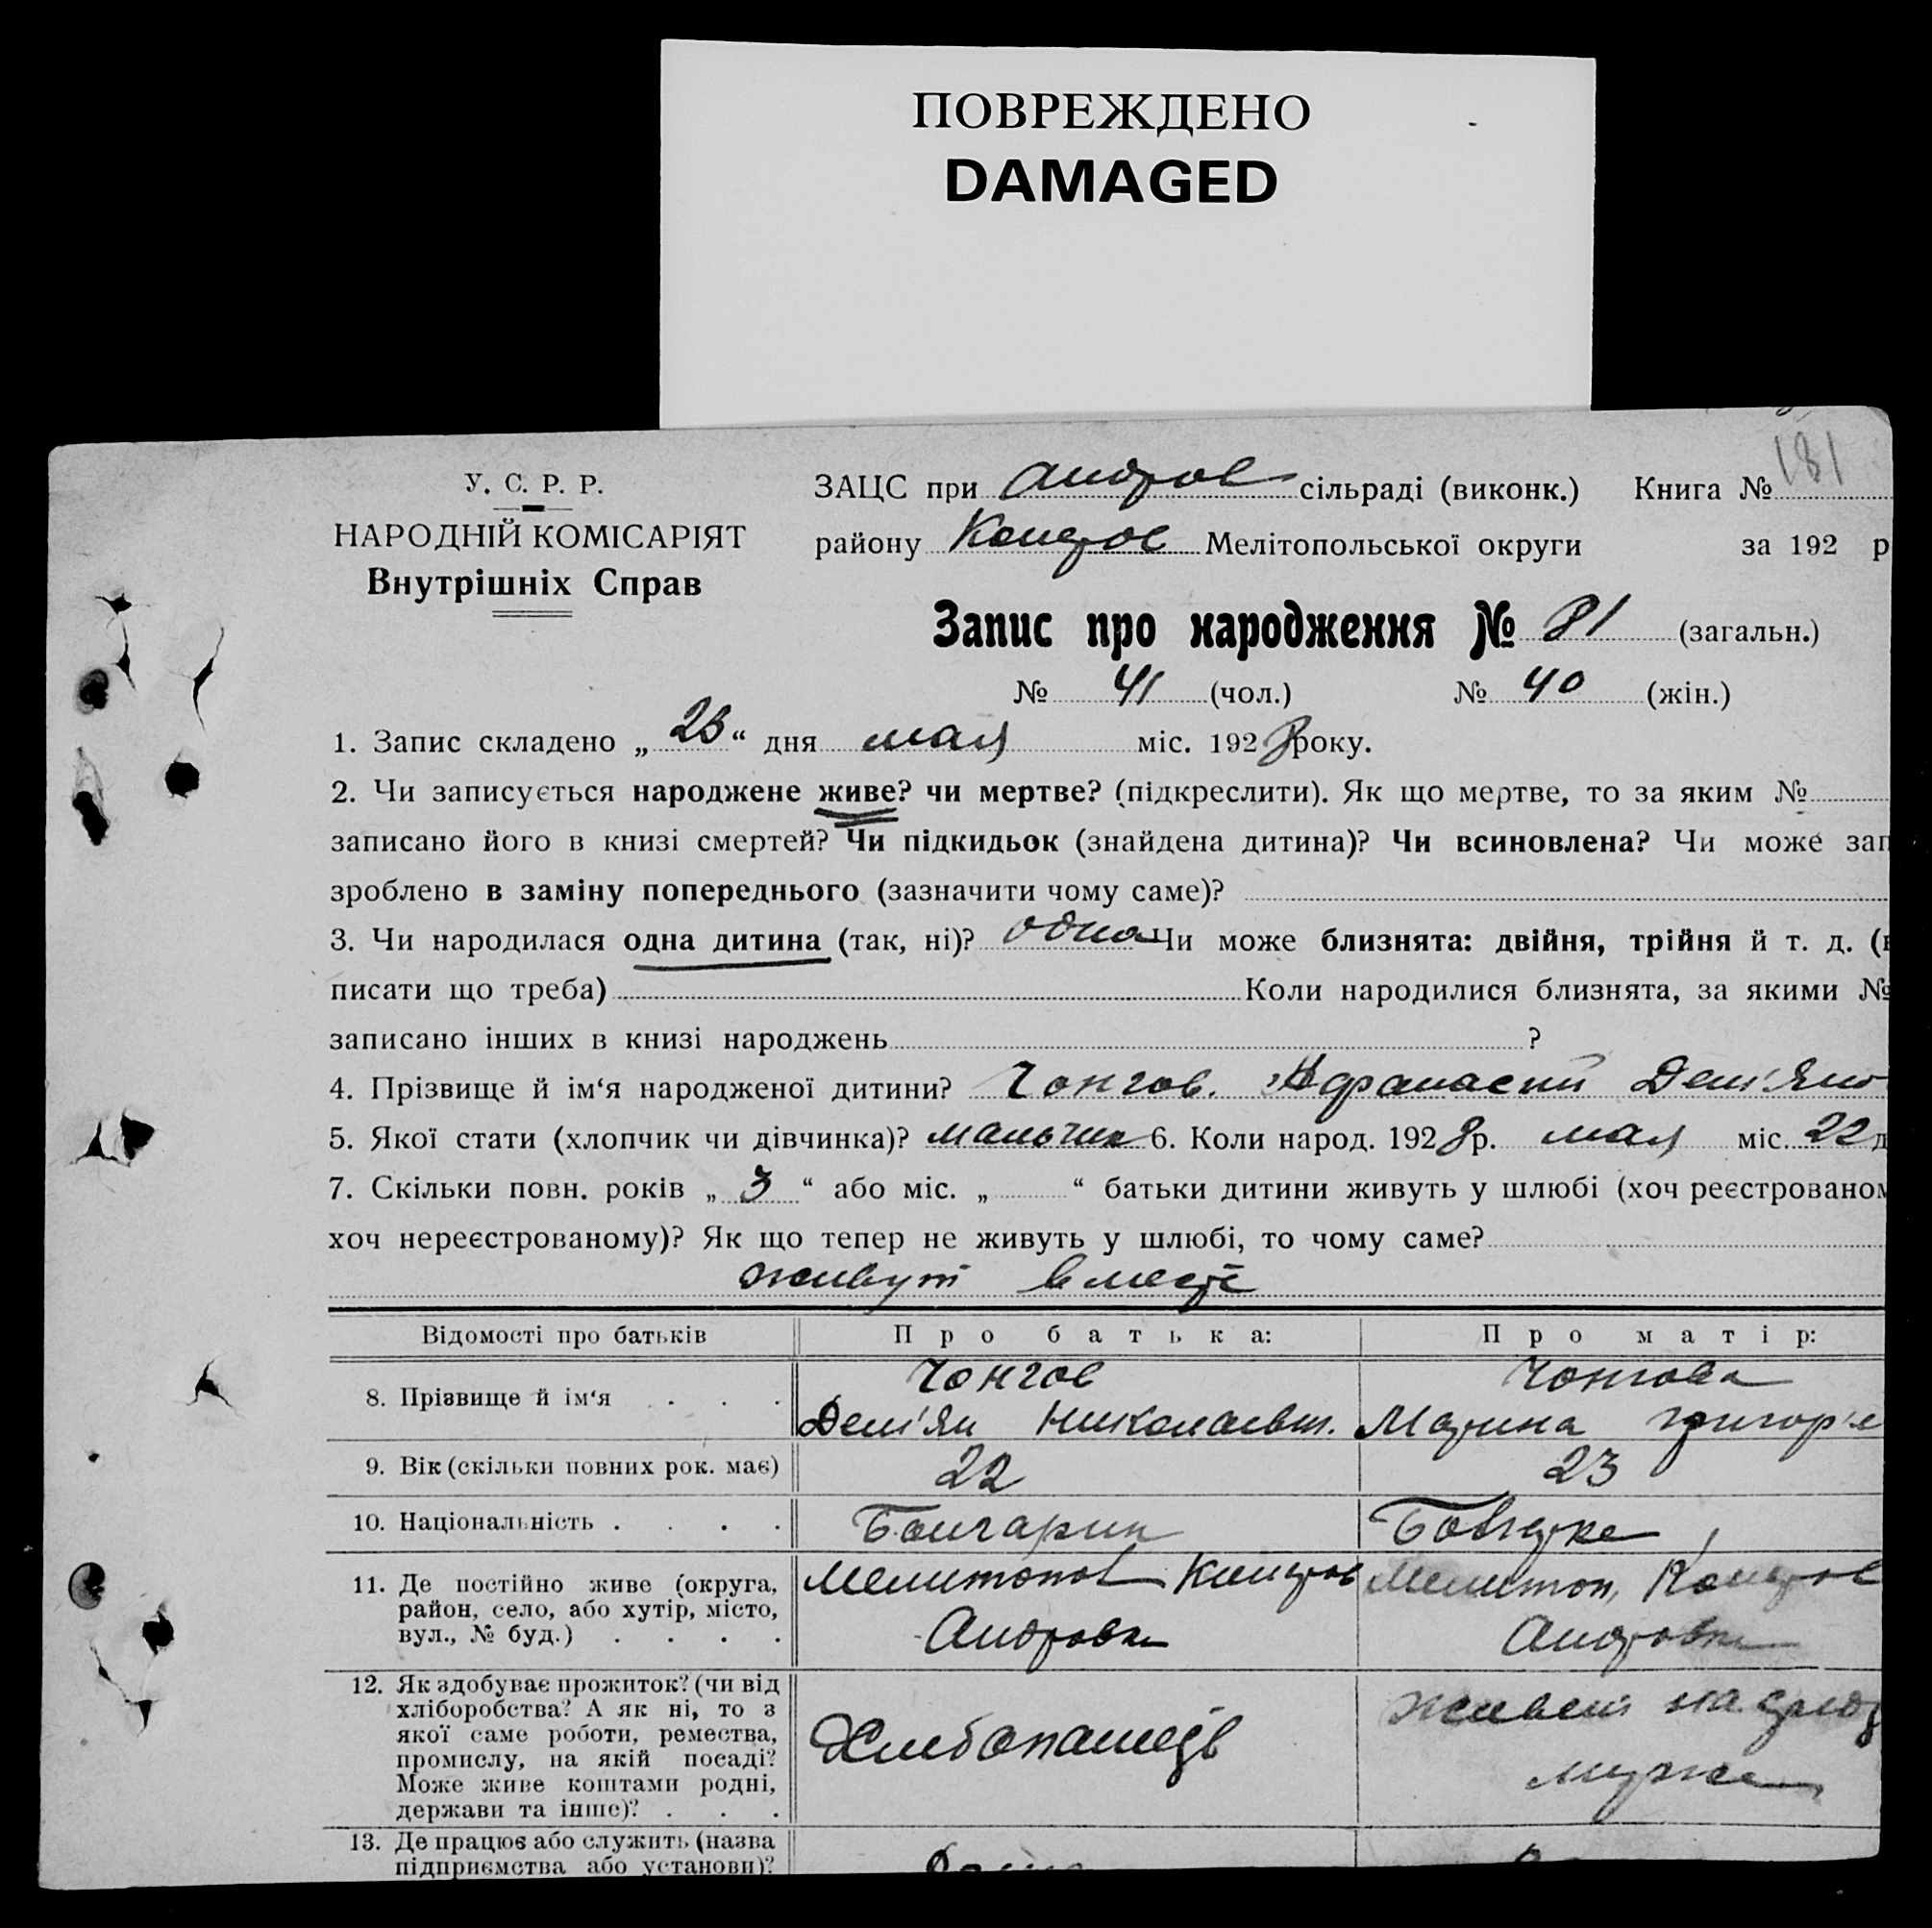 ПОВРЕЖДЕНО
DAMAGED
181
У. С. Р. Р.
НАРОДНІЙ КОМІСАРІЯТ
Внутрішніх Справ
ЗАЦС при Андров сільраді (виконк.) Книга №
району Мелітопольської округи за 192 р
Запис про народження № 81 (загальн.)
№ 41 (чол.) № 40 (жін.)
1. Запис складено „ 23 “ дня мая міс. 1928 року.
2. Чи записується народжене живе? чи мертве? (підкреслити). Як що мертве, то за яким №
записано його в книзі смертей? Чи підкидьок (знайдена дитина)? Чи всиновлена? Чи може зап
зроблено в заміну попереднього (зазначити чому саме)?
3. Чи народилася одна дитина (так, ні)? одна Чи може близнята: двійня, трійня й т. д. (
писати що треба) Коли народилися близнята, за якими №
записано інших в книзі народжень ?
4. Прізвище й ім‘я народженої дитини? Чонгов. Афанасий Дем'яно
5. Якої стати (хлопчик чи дівчинка)? мальчик 6. Коли народ. 1928 р. мая міс. 22 д
7. Скільки повн. років „ 3 “ або міс. „ “ батьки дитини живуть у шлюбі (хоч реєстрованом
хоч нереєстрованому)? Як що тепер не живуть у шлюбі, то чому саме?
живут вместе
Відомості про батьків Про батька: Про матір:
8. Прізвище й ім‘я Чонгов Чонгова
Дем'ян Николаевич. Марина Григор'е
9. Вік (скільки повних рок. має) 22 23
10. Національність Болгарин Болгарка
11. Де постійно живе (округа, район, село, або хутір, місто, вул., № буд.) Мелитопол Мелитоп,
Андровка Андровка
12. Як здобуває прожиток? (чи від хліборобства? А як ні, то з якої саме роботи, ремества, промислу, на якій посаді? Може живе коштами родні, держави та інше)? Хлебопашец Живет на
мужа
13. Де працює або служить (назва
підприємства або установи)?